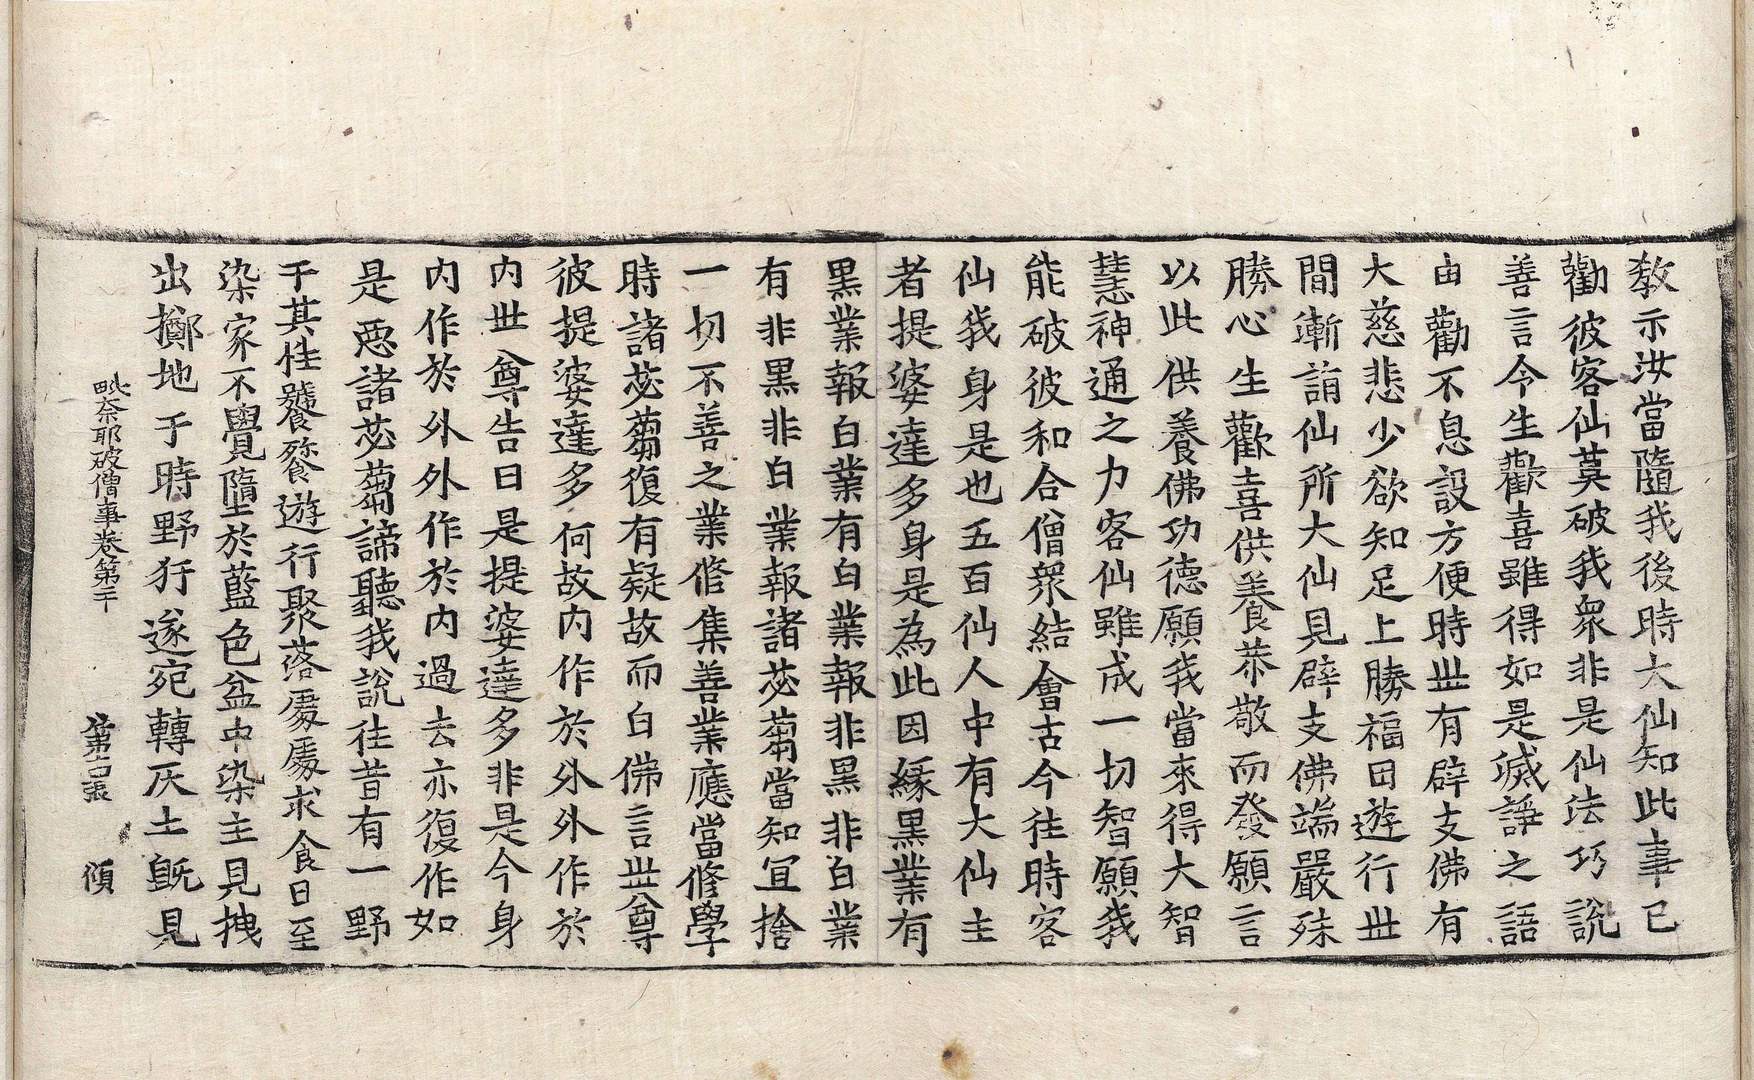 教示汝當隨我後時大仙知此事已
勸彼客仙莫破我衆非是仙法巧說
善言令生歡喜雖得如是滅諍之語
由勸不息設方便時世有辟支佛有
大慈悲少欲知足上勝福田遊行世
間漸詣仙所大仙見辟支佛端嚴殊
勝心生歡喜供養恭敬而發願言
以此供養佛功德願我當來得大智
慧神通之力客仙雖成一切智願我
能破彼和合僧衆結會古今往時客
仙我身是也五百仙人中有大仙主
者提婆達多身是為此因緣黑業有
黑業報白業有白業報非黑非白業
有非黑非白業報諸苾蒭當知宜捨
一切不善之業修集善業應當修學
時諸苾蒭復有疑故而白佛言世尊
彼提婆達多何故内作於外外作於
内世尊告曰是提婆達多非是今身
内作於外外作於内過去亦復作如
是惡諸苾蒭諦聽我說往昔有一野
干其性饕餮遊行聚落處處求食日至
染家不覺墮於藍色盆中染主見拽
出擲地于時野犴遂宛轉灰土旣見
毗奈耶破僧事卷第二十 第十六張 傾